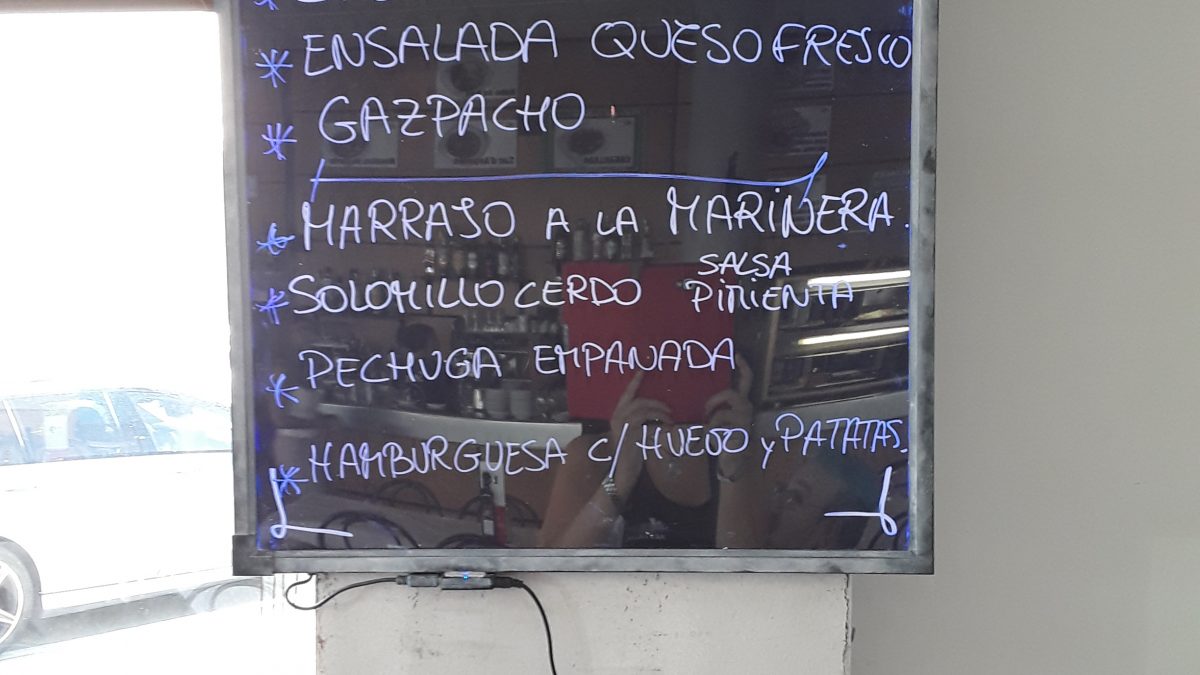 * ENSALADA QUESO FRESCO
* GAZPACHO
* MARRAJO A LA MARINERA.
* SOLOMILLO CERDO SALSA PIMIENTA
* PECHUGA EMPANADA
* HAMBURGUESA C/ HUEVO y PATATAS.